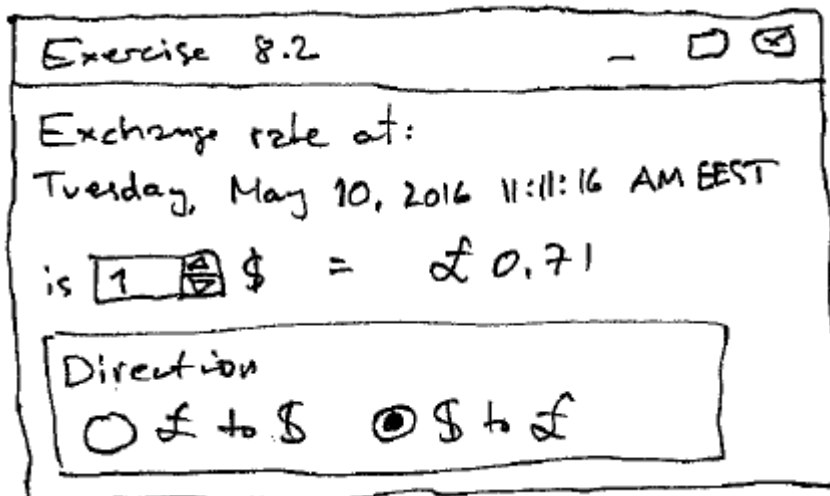 Exercise 8.2
Exchange rate at:
Tuesday, May 10, 2016 11:11:16 AM EEST
is 1 $ = £ 0.71
Direction
£ to $ $ to £